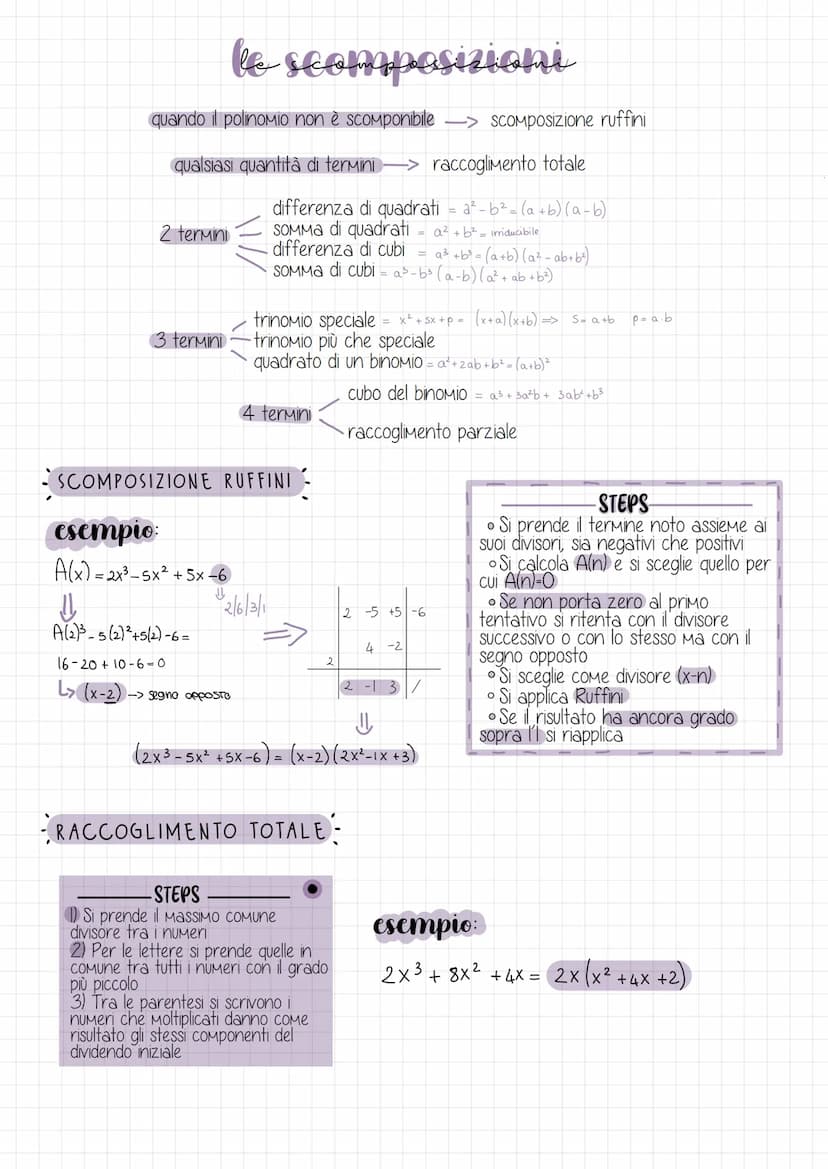 le scomposizioni
quando il polinomio non è scomponibile → scomposizione ruffini
qualsiasi quantità di termini → raccoglimento totale
2 termini
differenza di quadrati = a² - b² = (a + b) (a - b)
somma di quadrati = a² + b² = irriducibile
differenza di cubi = a³ + b³ = (a+b) (a² - ab + b²)
somma di cubi = a³ - b³ (a - b) (a² + ab + b²)
3 termini
trinomio speciale = x² + sx + p = (x+a)(x+b) ⇒ s = a+b p = a·b
trinomio più che speciale
quadrato di un binomio = a² + 2ab + b² = (a+b)²
4 termini
cubo del binomio = a³ + 3a²b + 3ab² + b³
raccoglimento parziale
SCOMPOSIZIONE RUFFINI
esempio:
A(x) = 2x³ - 5x² + 5x - 6
⇓ 2/6/3/1
A(2)³ - 5(2)² + 5(2) - 6 =
16 - 20 + 10 - 6 = 0
↳ (x - 2) → segno opposto
⇒
2 -5 +5 -6
4 -2
2
2 -1 3 /
(2x³ - 5x² + 5x - 6) = (x - 2)(2x² - 1x + 3)
STEPS
• Si prende il termine noto assieme ai
suoi divisori, sia negativi che positivi
• Si calcola A(n) e si sceglie quello per
cui A(n)=0
• Se non porta zero al primo
tentativo si ritenta con il divisore
successivo o con lo stesso ma con il
segno opposto
• Si sceglie come divisore (x-n)
• Si applica Ruffini
• Se il risultato ha ancora grado
sopra l'1 si riapplica
RACCOGLIMENTO TOTALE
STEPS
1) Si prende il massimo comune
divisore tra i numeri
2) Per le lettere si prende quelle in
comune tra tutti i numeri con il grado
più piccolo
3) Tra le parentesi si scrivono i
numeri che moltiplicati danno come
risultato gli stessi componenti del
dividendo iniziale
esempio:
2x³ + 8x² + 4x = 2x(x² + 4x + 2)